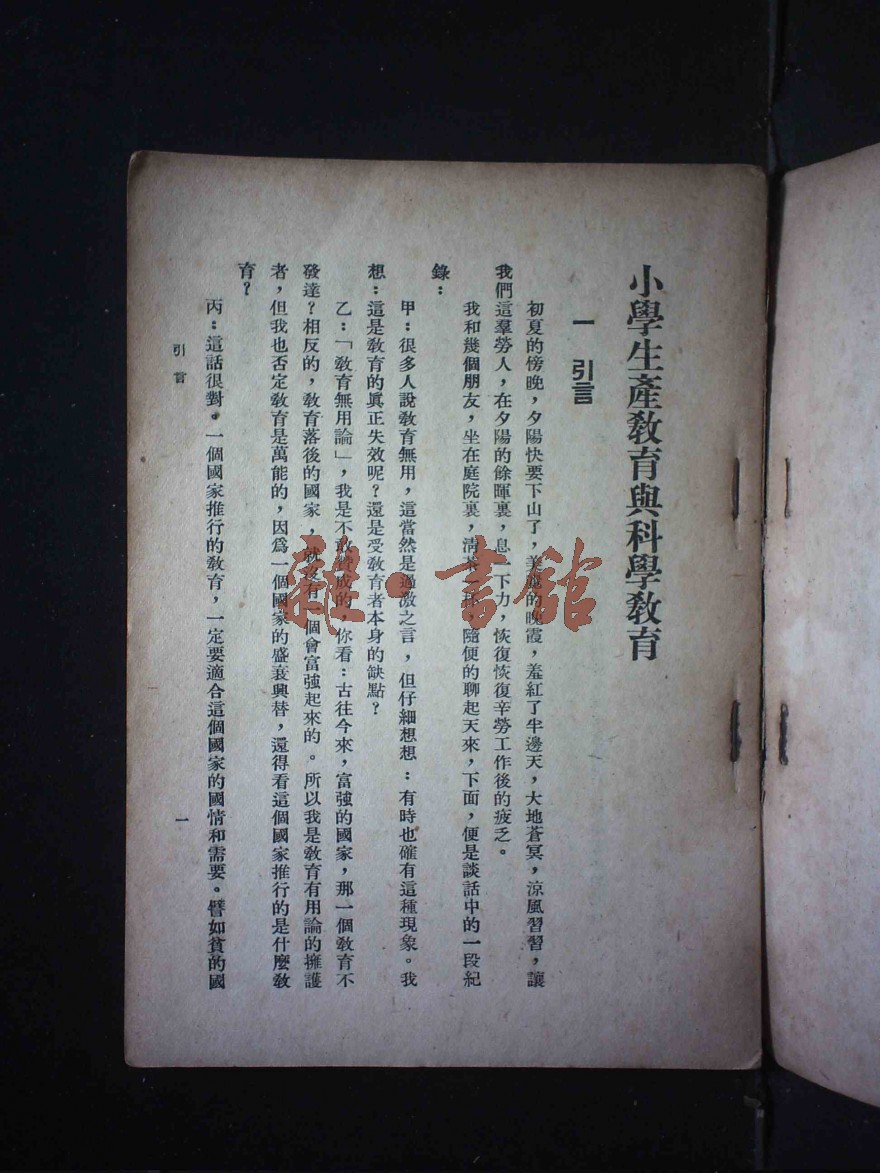 小學生產教育與科學教育
一 引言
初夏的傍晚，夕陽快要下山了，美麗的晚霞，羞紅了半邊天，大地蒼冥，涼風習習，讓
我們這羣勞人，在夕陽的餘暉裏，息一下力，恢復恢復辛勞工作後的疲乏。
我和幾個朋友，坐在庭院裏，清茶一杯，隨便的聊起天來，下面，便是談話中的一段紀
錄：
甲：很多人說教育無用，這當然是過激之言，但仔細想想：有時也確有這種現象。我
想：這是教育的眞正失效呢？還是受教育者本身的缺點？
乙：「教育無用論」，我是不敢贊成的，你看：古往今來，富強的國家，那一個教育不
發達？相反的，教育落後的國家，就沒有一個會富強起來的。所以我是教育有用論的擁護
者，但我也否定教育是萬能的，因爲一個國家的盛衰興替，還得看這個國家推行的是什麼教
育？
丙：這話很對。一個國家推行的教育，一定要適合這個國家的國情和需要。譬如貧的國
引言
一
雜·書館